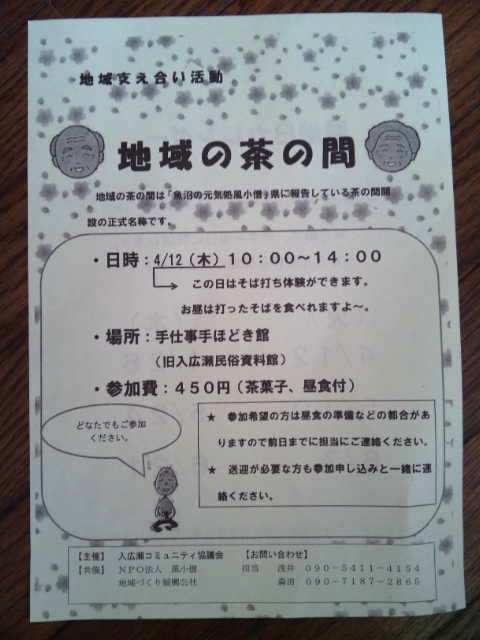 地域支え合い活動
地域の茶の間
地域の茶の間は「魚沼の元気処風小僧」県に報告している茶の間開
設の正式名称です。
・日時：4/12（木）１０：００～１４：００
この日はそば打ち体験ができます。
お昼は打ったそばを食べれますよ～。
・場所：手仕事手ほどき館
（旧入広瀬民俗資料館）
・参加費：４５０円（茶菓子、昼食付）
どなたでもご参加
ください。
★ 参加希望の方は昼食の準備などの都合があ
りますので前日までに担当にご連絡ください。
★ 送迎が必要な方も参加申し込みと一緒に連
絡ください。
【主催】 入広瀬コミュニティ協議会 【お問い合わせ】
【共催】 ＮＰＯ法人 風小僧 担当 浅井 ０９０－５４１１－４１５４
地域づくり振興公社 森田 ０９０－７１８７－２８６５